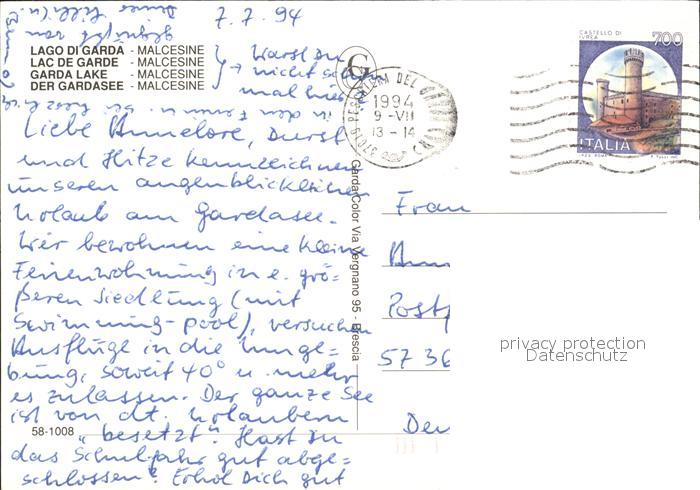 7.7.94
LAGO DI GARDA - MALCESINE
LAC DE GARDE - MALCESINE
GARDA LAKE - MALCESINE
DER GARDASEE - MALCESINE
Warst du
→ nicht schon
mal hier
Liebe Annelore, Durst
und Hitze kennzeichnen
unseren augenblicklichen
Urlaub am Gardasee.
Wir bewohnen eine kleine
Ferienwohnung in e. grö=
ßeren Siedlung (mit
Swimming-pool), versuchen
Ausflüge in die Umge=
bung, soweit 40° u. mehr
es zulassen. Der ganze See
ist von dt. Urlaubern
"besetzt". Hast du
das Schuljahr gut abge=
schlossen? Erhol Dich gut
in den Ferien.
58-1008
GardaColor Via Vergnano 95 - Brescia
G
1994
9-VII
13-14
37019
CASTELLO DI
IVREA
700
ITALIA
Frau
Ann
Postf
5736
Deu
privacy protection
Datenschutz